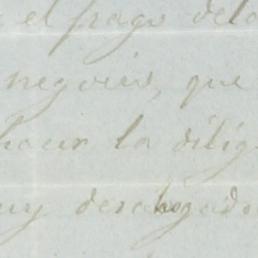 el pago de la
negocio, que
hacer la dilig
uy desahogado